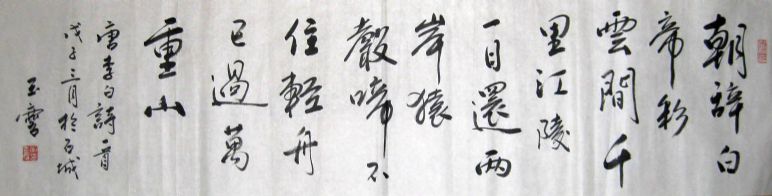 朝辭白
帝彩
雲間千
里江陵
一日還两
岸猿
聲啼不
住輕舟
已過萬
重山
唐李白詩一首
戊子三月於石城
玉